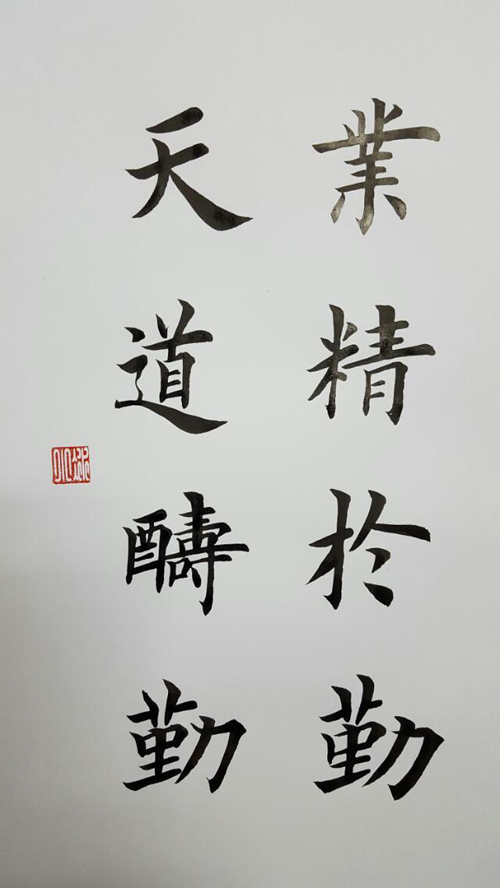 業精於勤
天道醻勤